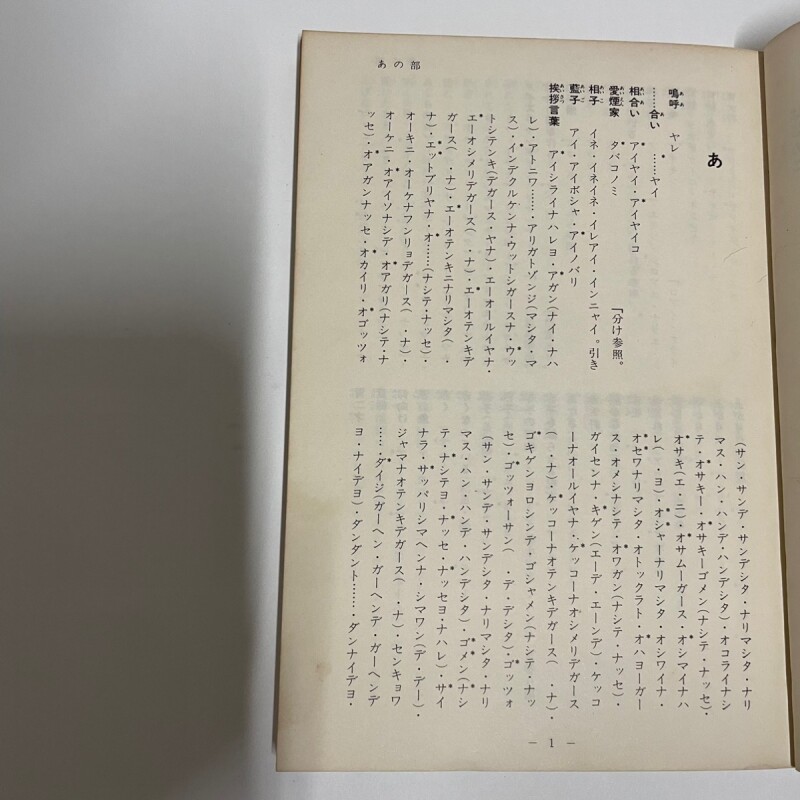 あの部
あ
嗚呼　ヤレ
……合い　……ヤイ
相合い　アイヤイ・アイヤイコ
愛煙家　タバコノミ
相子　イネ・イネイネ・イレアイ・インニャイ。引き
「分け参照。
藍子　アイ・アイボシャ・アイノバリ
挨拶言葉　アイシライナハレヨ・アガン(ナイ・ナハ
レ)・アトニワ……・アリガトゾンジ(マシタ・マ
ス)・インデクルケンナ・ウットシガースナ・ウッ
トシテンキ(デガース・ヤナ)・エーオールイヤナ・
エーオシメリデガース(　.ナ)・エーオテンキデ
ガース(　.ナ)・エーオテンキニナリマシタ(　.
ナ)・エットブリヤナ・オ……(ナシテ・ナッセ)・
オーキニ・オーケナフンリョデガース(　.ナ)・
オーケニ・オアイソナシデ・オアガリ(ナシテ・ナ
ッセ)・オアガンナッセ・オカイリ・オゴッツォ
(サン・サンデ・サンデシタ・ナリマシタ・ナリ
マス・ハン・ハンデ・ハンデシタ)・オコライナシ
テ・オサキー・オサキーゴメン(ナシテ・ナッセ)・
オサキ(エ・ニ)・オサムーガース・オシマイナハ
レ(　.ヨ)・オシャーナリマシタ・オシワイナ・
オセワナリマシタ・オトックラト・オハヨーガー
ス・オメシナシテ・オワガン(ナシテ・ナッセ)・
ガイセンナ・キゲン(エーデ・エーンデ)・ケッコ
ーナオールイヤナ・ケッコーナオシメリデガース
(　.ナ)・ケッコーナオテンキデガース(　.ナ)・
ゴキゲンヨロシンデ・ゴシャメン(ナシテ・ナッ
セ)・ゴッツォーサン(　.デ・デシタ)・ゴッツォ
(サン・サンデ・サンデシタ・ナリマシタ・ナリ
マス・ハン・ハンデ・ハンデシタ)・ゴメン(ナシ
テ・ナシテヨ・ナッセ・ナッセヨ・ナハレ)・サイ
ナラ・サッパリシマヘンナ・シマワン(デ・デー)・
ジャマナオテンキデガース(　.ナ)・センキョワ
……・ダイジ(ガーヘン・ガーヘンデ・ガーヘンデ
ヨ・ナイデヨ)・ダンダント……・ダンナイデヨ・
— 1 —